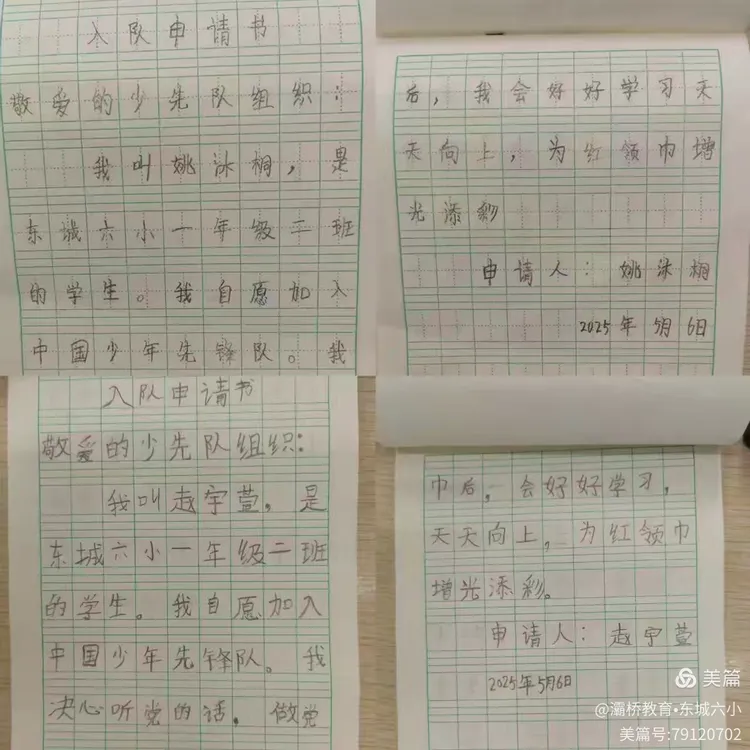 入队申请书
敬爱的少先队组织：
我叫姚沐桐，是
东城六小一年级二班
的学生。我自愿加入
中国少年先锋队。我
后，我会好好学习天
天向上，为红领巾增
光添彩
申请人：姚沐桐
2025年5月6日
入队申请书
敬爱的少先队组织：
我叫赵宇萱，是
东城六小一年级二班
的学生。我自愿加入
中国少年先锋队。我
决心听党的话，做党
巾后，会好好学习，
天天向上，为红领巾
增光添彩。
申请人：赵宇萱
2025年5月6日
美篇
@灞桥教育•东城六小
美篇号:79120702